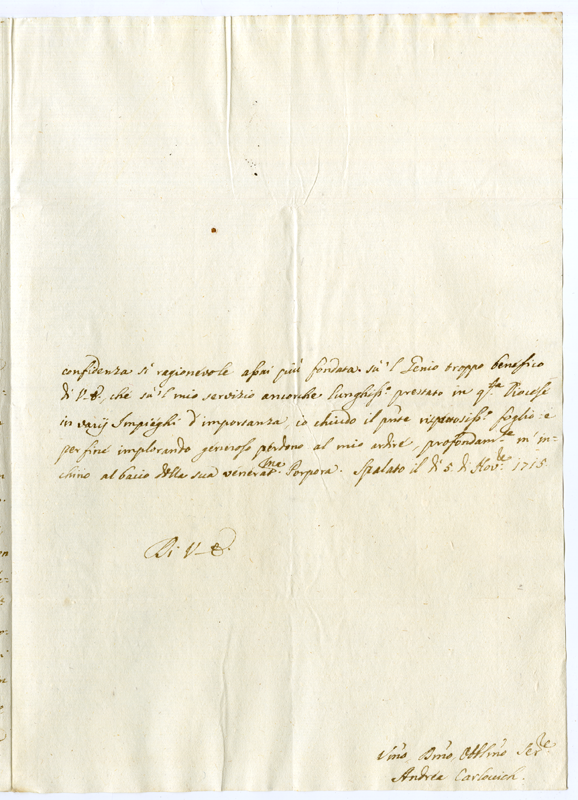 confidenza si ragionevole assai più fondata sù 'l Genio troppo benefico
di V. E. che sù 'l mio servizio ancorche lunghiss.º prestato in q.sta Diocese
in varij Impieghi d'importanza, io chiudo il pnte rispettosiss.º foglio: e
per fine implorando generoso perdono al mio ardire, profondam.te m'in=
chino al bacio della sua venerat.ma Porpora. Spalato il dì 5. di Nov.e 1715.
Di V. E.
Vmo Dmo Obblmo Ser.re
Andrea Carlovich.